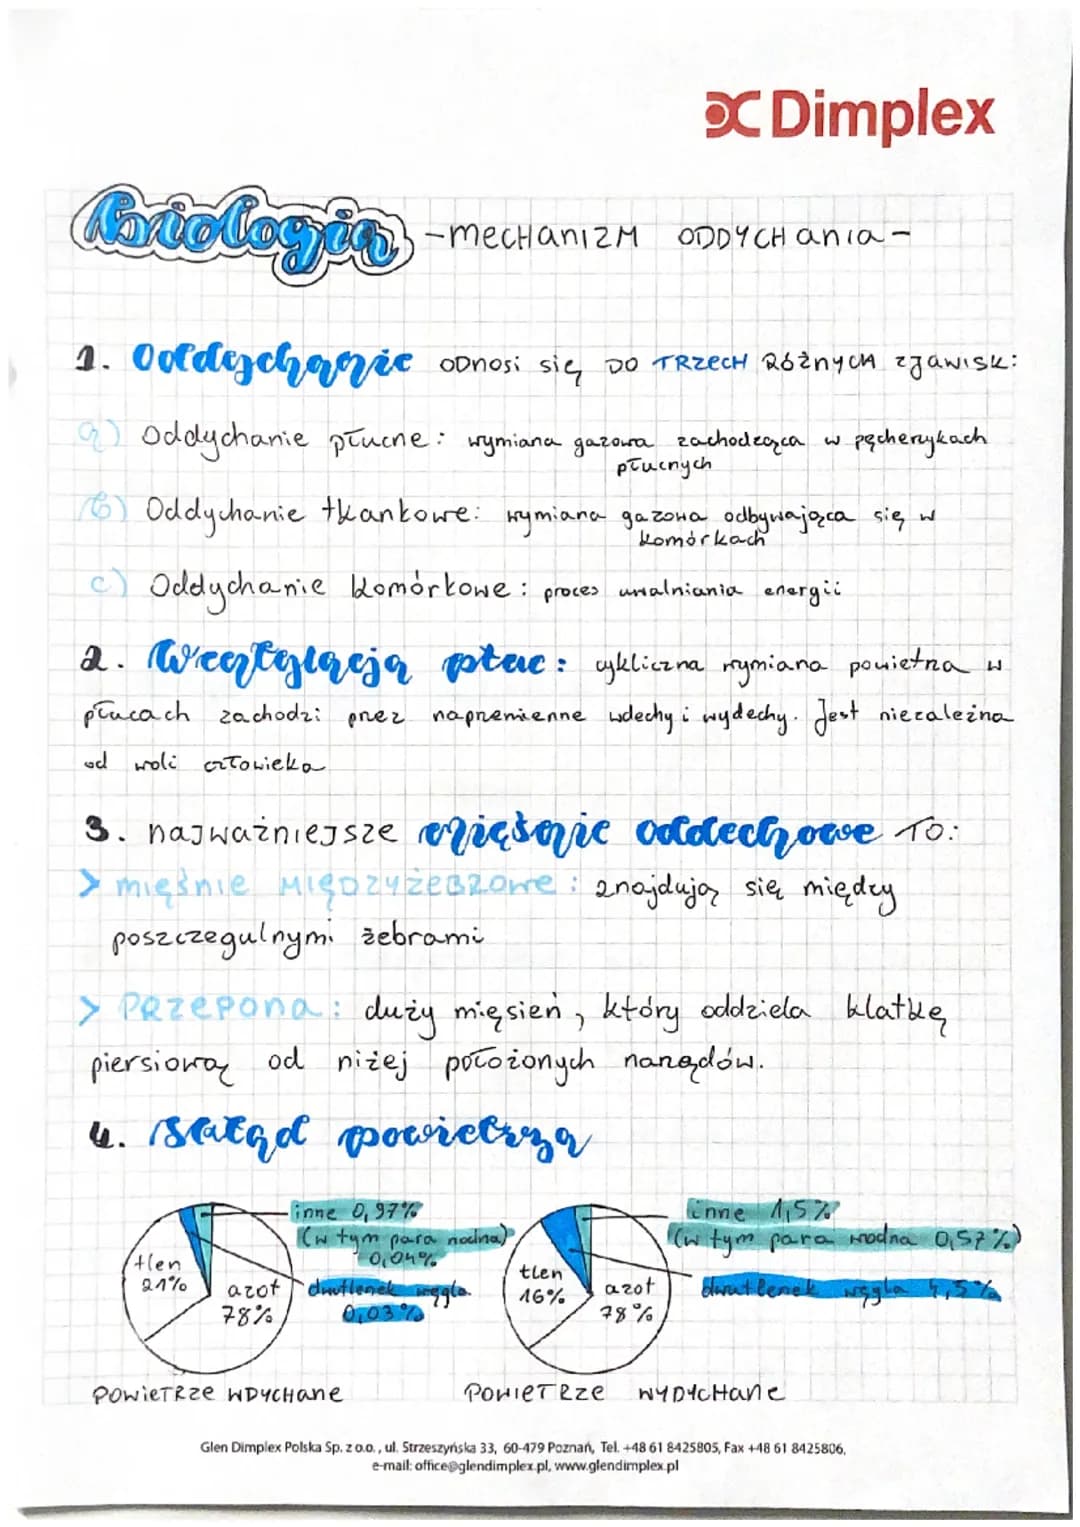 Dimplex
Biologia -MECHANIZM ODDYCHANIA-
1. Oddychanie ODNOSI SIĘ DO TRZECH RÓŻNYCH ZJAWISK:
a) Oddychanie płucne: wymiana gazowa zachodząca w pęcherzykach
płucnych
b) Oddychanie tkankowe: wymiana gazowa odbywająca się w
komórkach
c) Oddychanie komórkowe: proces uwalniania energii
2. Wentylacja płuc: cykliczna wymiana powietrza w
płucach zachodzi przez naprzemienne wdechy i wydechy. Jest niezależna
od woli człowieka
3. NAJWAŻNIEJSZE mięśnie oddechowe TO:
> MIĘŚNIE MIĘDZYŻEBROWE: znajdują się między
poszczegulnymi żebrami
> PRZEPONA: duży mięsień, który oddziela klatkę
piersiową od niżej położonych narządów.
4. Skład powietrza
tlen
21%
azot
78%
inne 0,97%
(w tym para wodna)
0,04%
dwutlenek węgla
0,03%
POWIETRZE WDYCHANE
tlen
16%
azot
78%
inne 1,5%
(w tym para wodna 0,57%)
dwutlenek węgla 4,5%
POWIETRZE WYDYCHANE
Glen Dimplex Polska Sp. z o.o., ul. Strzeszyńska 33, 60-479 Poznań, Tel. +48 61 8425805, Fax +48 61 8425806,
e-mail: office@glendimplex.pl, www.glendimplex.pl